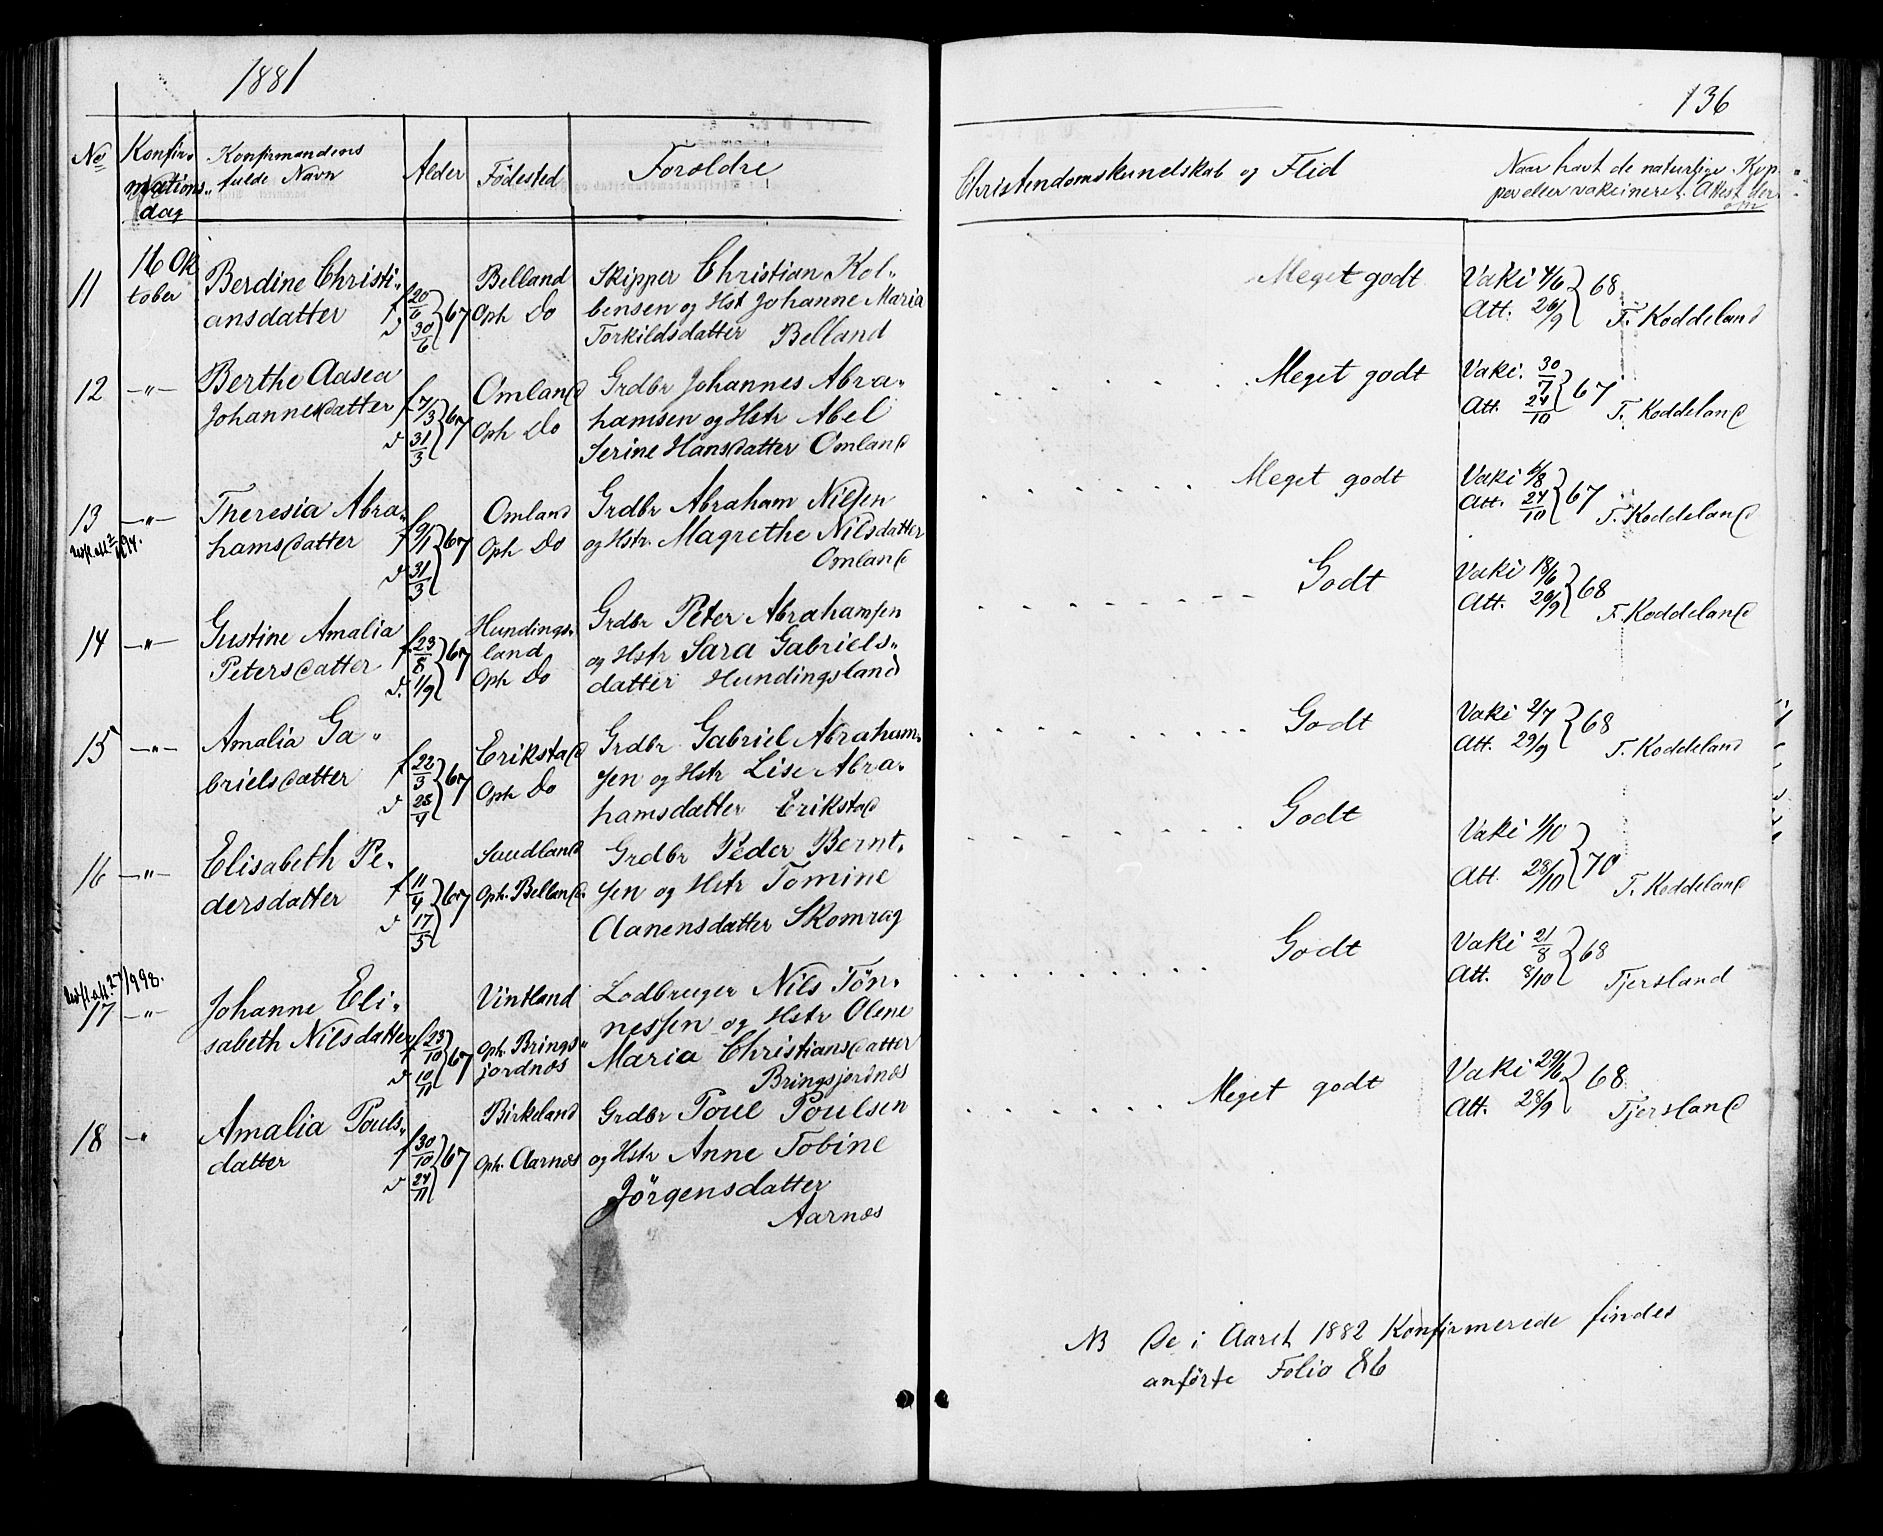 1881
136
No Konfir- Konfirmandens Alder Födested Foroldre Christendomskundskab og Flid Naar havt de naturlige Kop-
mations- fulde Navn per eller vakcineret. Attest der-
dag om
11 16 Ok Berdine Christi- Belland Skipper Christian Kol- Meget godt Vaki 4/6 } 68
tober ansdatter f 20/6 } 67 Oph Do bensen og Hst Johanne Maria Att. 26/9 T. Koddeland
d 30/6 Torkildsdatter Belland
12 —"— Berthe Aasea Omland Grdbr Johannes Abra- Meget godt Vaki. 30/7 } 67
Johannesdatter f 7/3 } 67 Oph Do hamsen og Hstr Abel Att. 24/10 T. Koddeland
d 31/3 Serine Hansdatter Omland
13 —"— Theresia Abra- Omland Grdbr Abraham Nilsen Meget godt Vaki 6/8 } 67
hamsdatter f 9/1 } 67 Oph Do og Hstr. Magrethe Nilsdatter Att. 24/10 T. Koddeland
d 31/3 Omland
14 —"— Gustine Amalia Hundings- Grdbr Peter Abrahamsen Godt Vaki 18/6 } 68
Petersdatter f 23/8 } 67 land og Hstr Sara Gabriels- Att. 26/9 T. Koddeland
d. 1/9 Oph Do datter Hundingsland
15 —"— Amalia Ga- Erikstad Grdbr Gabriel Abraham- Godt Vaki 2/7 } 68
brielsdatter f 22/3 } 67 Oph Do sen og Hstr Lise Abra- Att. 29/9 T. Koddeland
d 28/4 hamsdatter Erikstad
16 —"— Elisabeth Pe- Saudland Grdbr Peder Bernt- Godt Vaki 1/10 } 70
dersdatter f 11/4 } 67 Oph. Belland. sen og Hstr Tomine Att. 28/10 T. Koddeland
d 17/5 Aanensdatter Skomrag
17 —"— Johanne Eli- Vintland Lodbruger Nils Tön- Godt Vaki 21/8 } 68
sabeth Nilsdatter f 23/10 } 67 Oph. Brings- nessen og Hstr Olene Att. 8/10 Tjersland
d 10/11 jordnæs Maria Christiansdatter
Bringsjordnæs
18 —" Amalia Pouls- Birkeland Grdbr Poul Poulsen Meget godt Vaki 29/6 } 68
datter f 30/10 } 67 Oph. Aarnæs og Hstr Anne Tobine Att. 28/9 Tjersland
d 24/11 Jörgensdatter
Aarnæs
NB De i Aaret 1882 Konfirmerede findes
anførte Folio 86